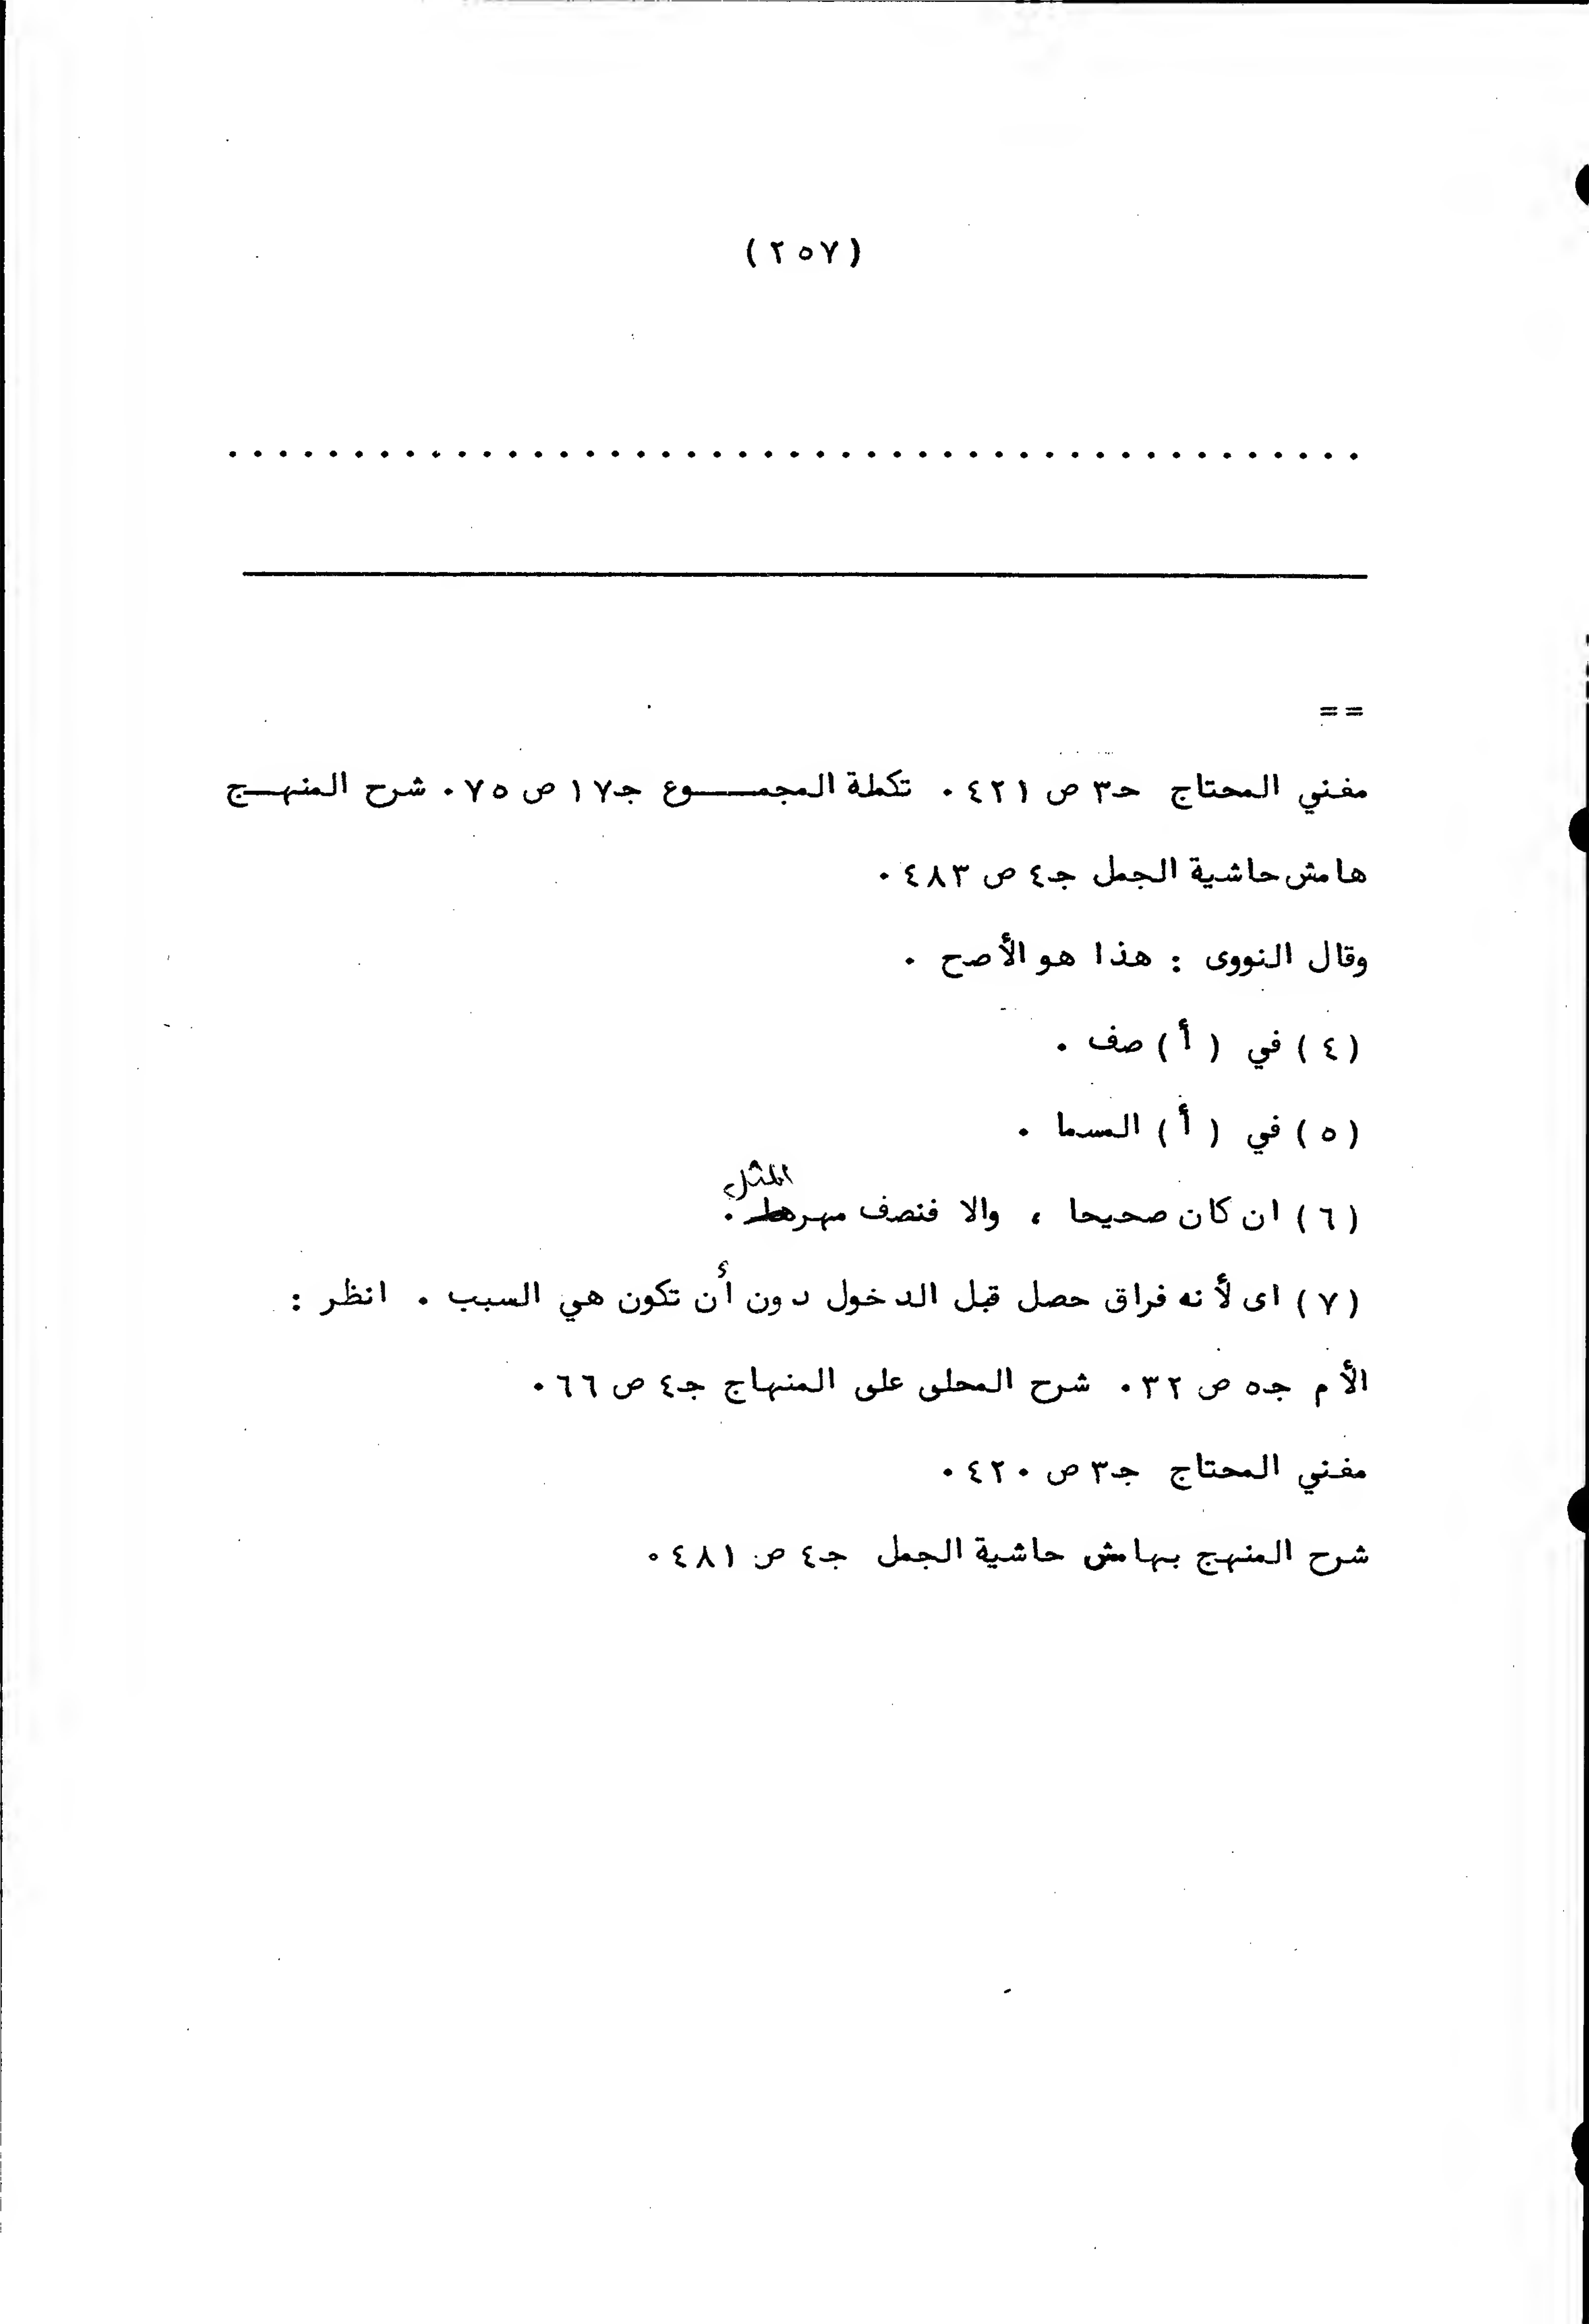 (٢٥٧)
. . . . . . . . . . . . . . . . . . . . . . . . . . . . . . . . . . . . . . . . . . . . .
==
مغني المحتاج حـ٣ ص ٤٢١ . تكملة المجمــــوع جـ١٧ ص ٧٥ . شرح المنهــج
هامش حاشية الجمل جـ٤ ص ٤٨٣ .
وقال النووى : هذا هو الأصح .
(٤) في (أ) صف .
(٥) في (أ) المسما .
(٦) ان كان صحيحا ، والا فنصف مهر المثل .
(٧) اى لأنه فراق حصل قبل الدخول دون أن تكون هي السبب . انظر :
الأم جـ٥ ص ٣٢ . شرح المحلى على المنهاج جـ٤ ص ٦٦ .
مغني المحتاج جـ٣ ص ٤٢٠ .
شرح المنهج بهامش حاشية الجمل جـ٤ ص ٤٨١ .